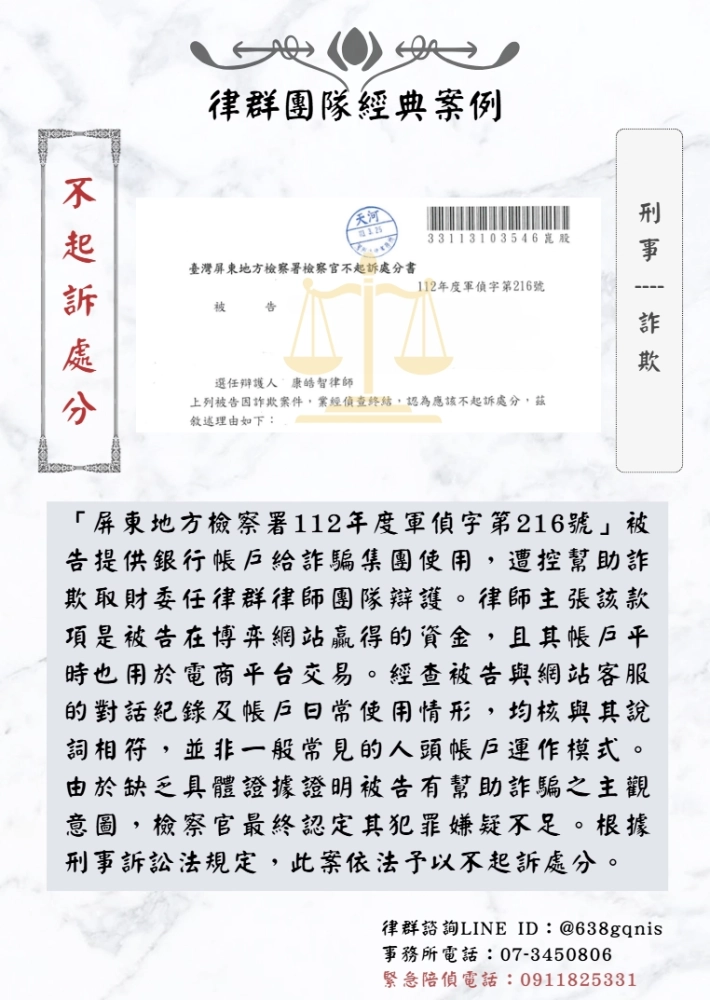 律群團隊經典案例
不起訴處分
刑事----詐欺
天河
33113103546 崑股
臺灣屏東地方檢察署檢察官不起訴處分書
112年度軍偵字第216號
被 告
選任辯護人 康皓智律師
上列被告因詐欺案件,業經偵查終結,認為應該不起訴處分,茲
敘述理由如下:
「屏東地方檢察署112年度軍偵字第216號」被
告提供銀行帳戶給詐騙集團使用,遭控幫助詐
欺取財委任律群律師團隊辯護。律師主張該款
項是被告在博弈網站贏得的資金,且其帳戶平
時也用於電商平台交易。經查被告與網站客服
的對話紀錄及帳戶日常使用情形,均核與其說
詞相符,並非一般常見的人頭帳戶運作模式。
由於缺乏具體證據證明被告有幫助詐騙之主觀
意圖,檢察官最終認定其犯罪嫌疑不足。根據
刑事訴訟法規定,此案依法予以不起訴處分。
律群諮詢LINE ID:@638gqnis
事務所電話:07-3450806
緊急陪偵電話:0911825331